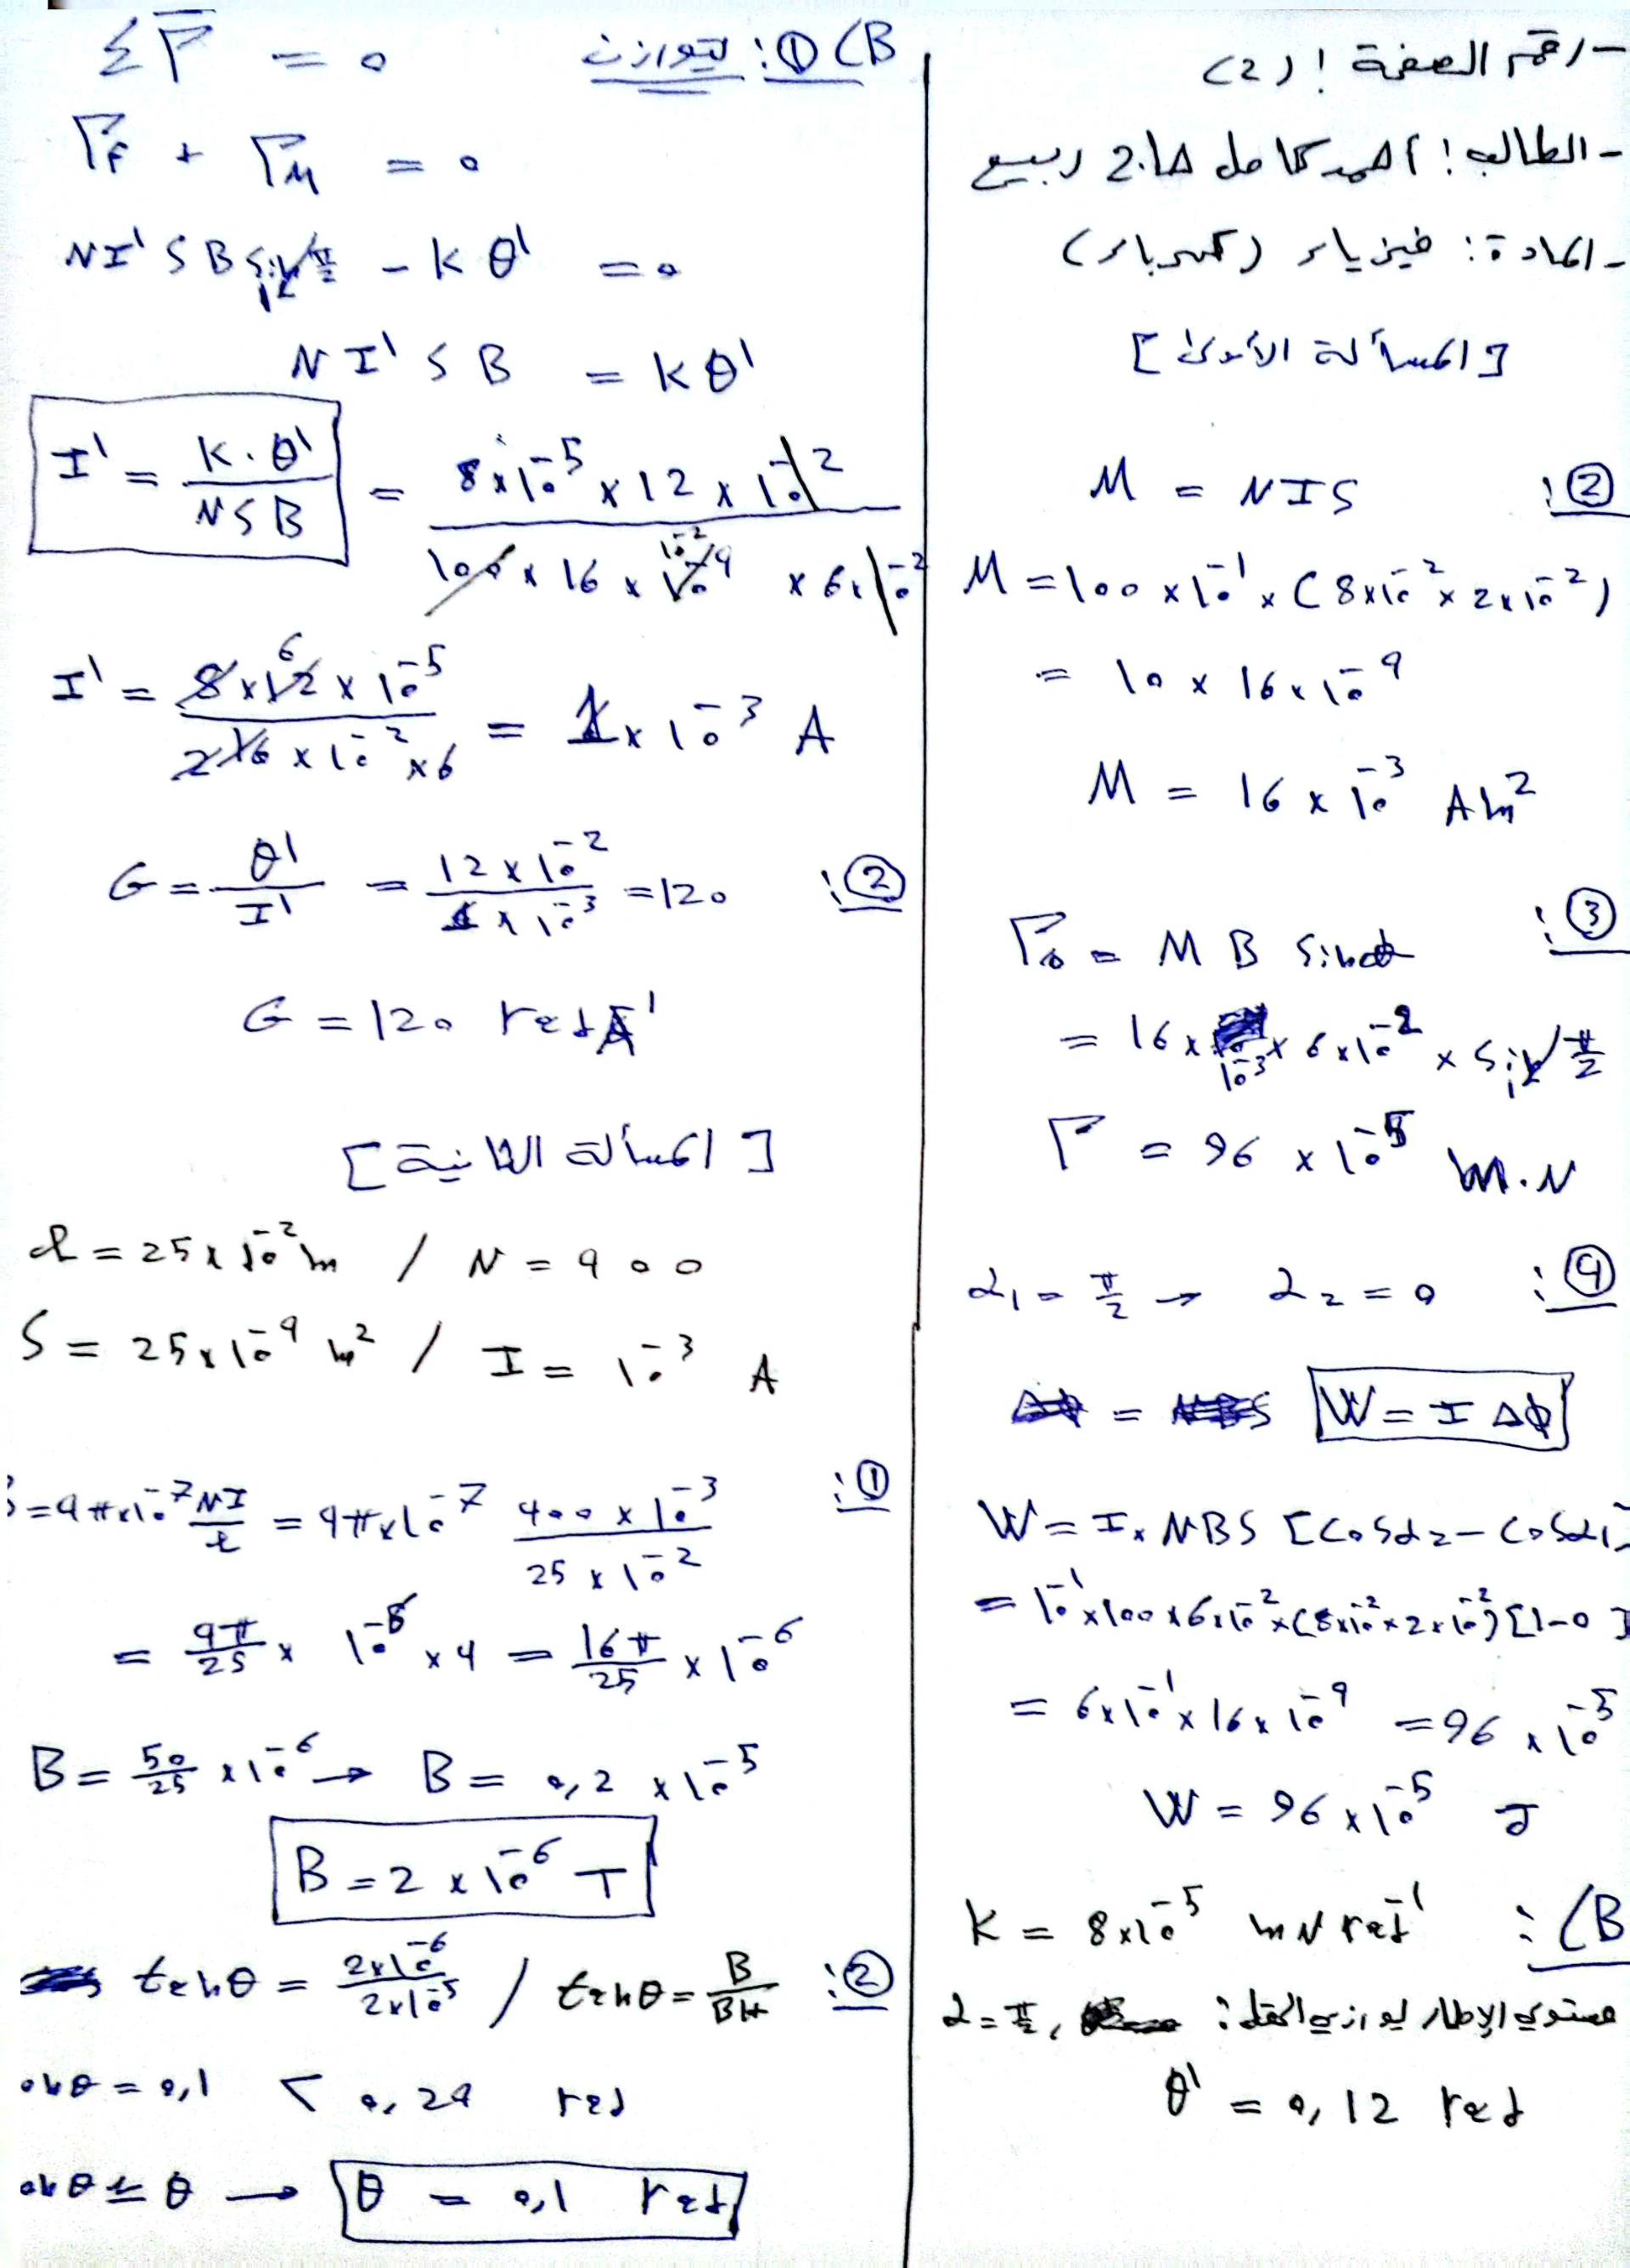 - رقم الصفحة: (2)
- الطالب: أحمد كامل هاني ربيع
- المادة: فيزياء (كهرباء)
[المسألة الأولى]
② : M = NIS
M = 100 × 10⁻¹ × (8×10⁻² × 2×10⁻²)
= 10 × 16 × 10⁻⁴
M = 16 × 10⁻³ Am²
③ : Γ₀ = M B sinα
= 16 × 10⁻³ × 6×10⁻² × sin π/2
Γ = 96 × 10⁻⁵ m.N
④ : α₁ = π/2 → α₂ = 0
W = I ΔΦ
W = I × NBS [cosα₂ - cosα₁]
= 10⁻¹ × 100 × 6×10⁻² × (8×10⁻² × 2×10⁻²) [1-0]
= 6×10⁻¹ × 16 × 10⁻⁴ = 96 × 10⁻⁵
W = 96 × 10⁻⁵ J
B) : K = 8×10⁻⁵ mN rad⁻¹
مستوي الإطار يوازي الحقل : α = π/2 ,
θ' = 0,12 rad
B) ① : توازن ΣΓ = 0
Γ_F + Γ_M = 0
NI' S B sin π/2 - K θ' = 0
N I' S B = K θ'
I' = K.θ' / NSB = 8×10⁻⁵ × 12 × 10⁻² / 100 × 16 × 10⁻⁴ × 6×10⁻²
I' = 8×12 × 10⁻⁵ / 16 × 10⁻² × 6 = 1 × 10⁻³ A
② : G = θ' / I' = 12 × 10⁻² / 1 × 10⁻³ = 120
G = 120 rad A⁻¹
[المسألة الثانية]
ℓ = 25 × 10⁻² m / N = 400
S = 25×10⁻⁴ m² / I = 10⁻³ A
① : = 4π×10⁻⁷ NI/ℓ = 4π×10⁻⁷ 400 × 10⁻³ / 25 × 10⁻²
= 4π/25 × 10⁻⁶ × 4 = 16π/25 × 10⁻⁶
B = 50/25 × 10⁻⁶ → B = 0,2 × 10⁻⁵
B = 2 × 10⁻⁶ T
② : tanθ = 2×10⁻⁶ / 2×10⁻⁵ / tanθ = B / BH
anθ = 0,1 < 0,24 rad
anθ ≃ θ → θ = 0,1 rad